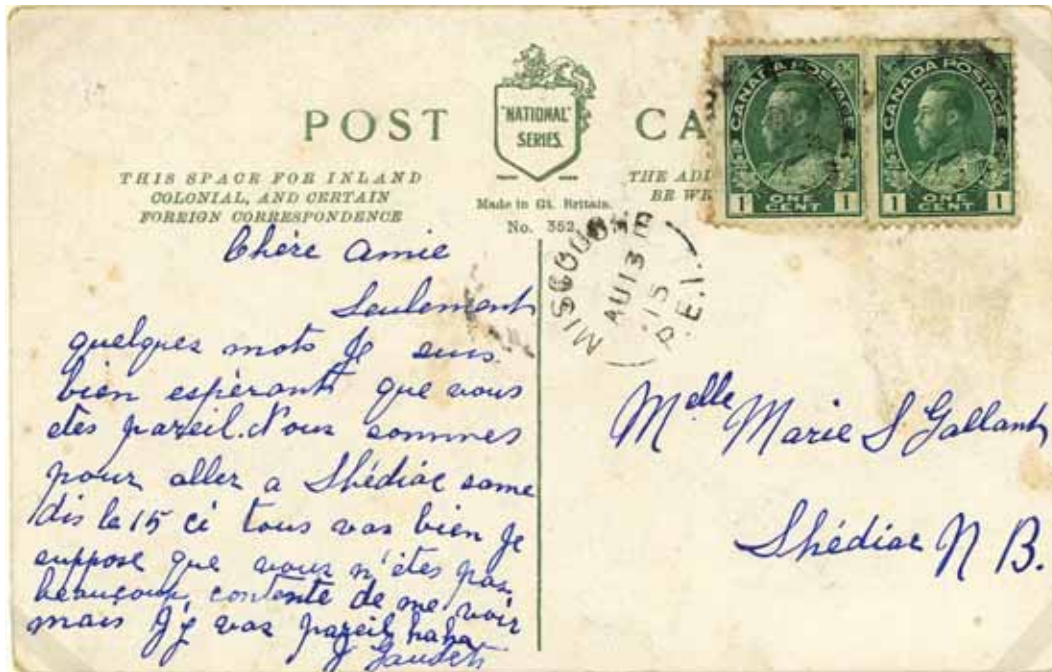 POST CA
"NATIONAL"
SERIES.
THIS SPACE FOR INLAND
COLONIAL, AND CERTAIN
FOREIGN CORRESPONDENCE
Made in Gt. Britain.
No. 352
THE
BE
CANADA POSTAGE
1 ONE CENT 1
CANADA POSTAGE
1 ONE CENT 1
MISCOUCHE
AU 13
15
P.E.I.
Chère Amie
Seulement
quelques mots Je suis
bien espérant que vous
etes pareil. Nous sommes
pour aller a Shédiac same
dis le 15 ci tous vas bien Je
suppose que vous n'étes pas
beaucoup contente de me voir
mais J'y vas pareil haha
J Gaudet
Melle Marie S Gallant
Shédiac N B.